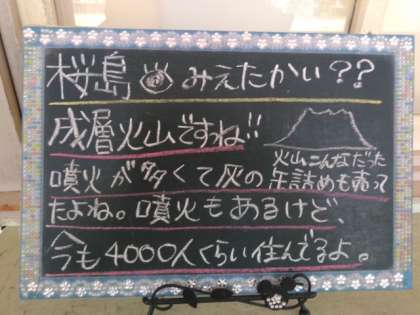 桜島 みえたかい??
成層火山ですね!!
火山こんなだった
噴火が多くて灰の缶詰めも売って
たよね。噴火もあるけど、
今も4000人くらい住んでるよ。